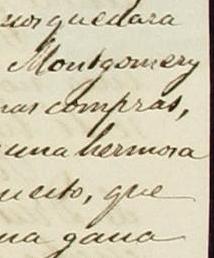 nos quedara
Montgomery
nas compras,
una hermosa
mento, que
na gana